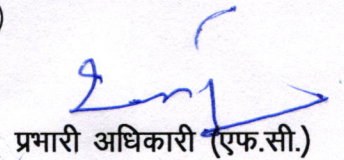 प्रभारी अधिकारी (एफ.सी.)